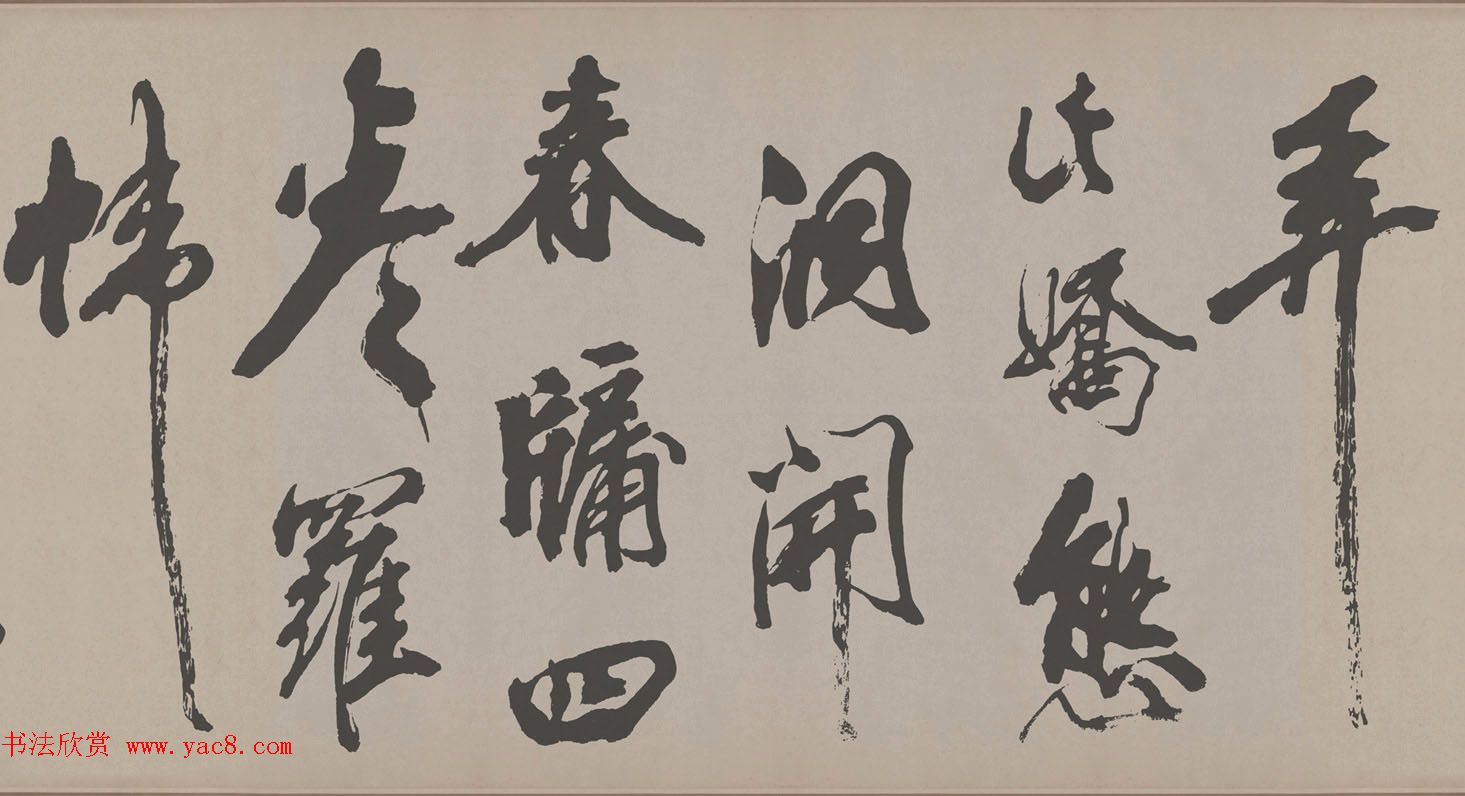 弄
此嬌態
洞開
春牖四
卷羅
幃
书法欣赏 www.yac8.com